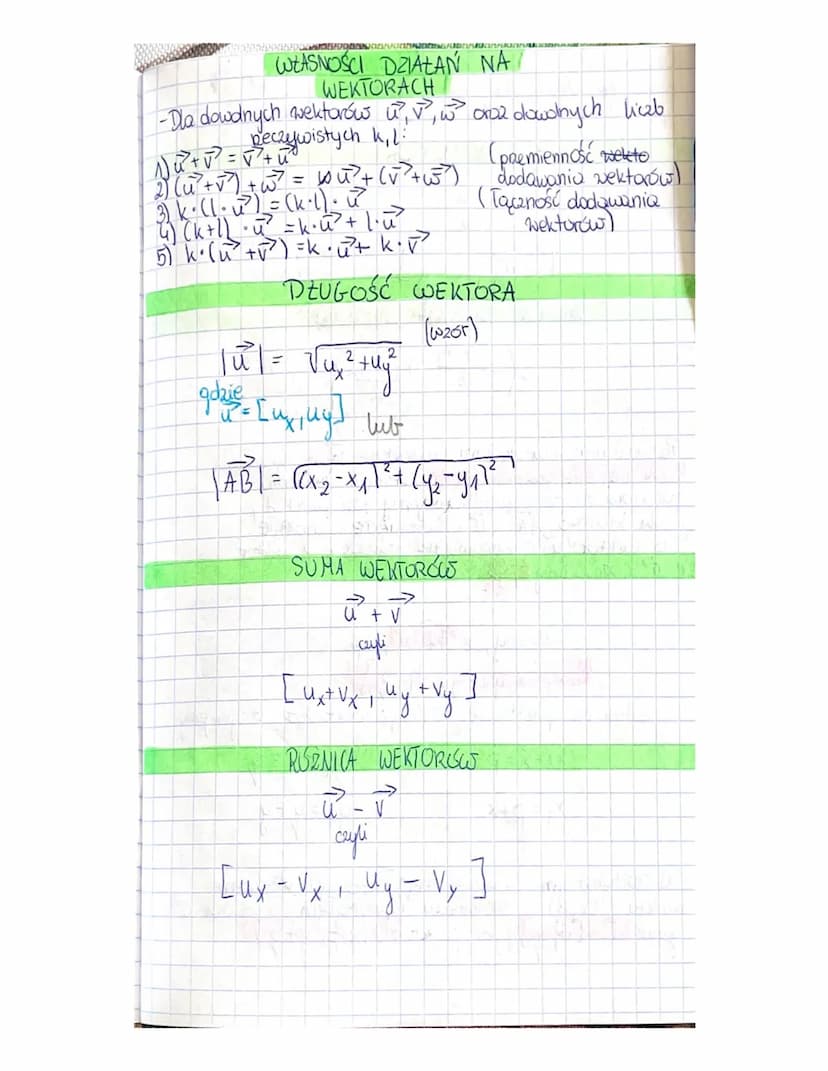 WŁASNOŚCI DZIAŁAŃ NA
WEKTORACH
-Dla dowolnych wektorów u⃗, v⃗, w⃗ oraz dowolnych liczb
rzeczywistych k, l:
1) u⃗ + v⃗ = v⃗ + u⃗ (przemienność wekto
2) (u⃗ + v⃗) + w⃗ = u⃗ + (v⃗ + w⃗) dodawania wektorów)
3) k·(l·u⃗) = (k·l)·u⃗ (łączność dodawania
4) (k+l)·u⃗ = k·u⃗ + l·u⃗ wektorów)
5) k·(u⃗ + v⃗) = k·u⃗ + k·v⃗
DŁUGOŚĆ WEKTORA
(wzór)
|u⃗| = √(uₓ² + u_y²)
gdzie
u⃗ = [uₓ, u_y] lub
|AB⃗| = √((x₂-x₁)² + (y₂-y₁)²)
SUMA WEKTORÓW
u⃗ + v⃗
czyli
[uₓ+vₓ, u_y+v_y]
RÓŻNICA WEKTORÓW
u⃗ - v⃗
czyli
[uₓ - vₓ, u_y - v_y]